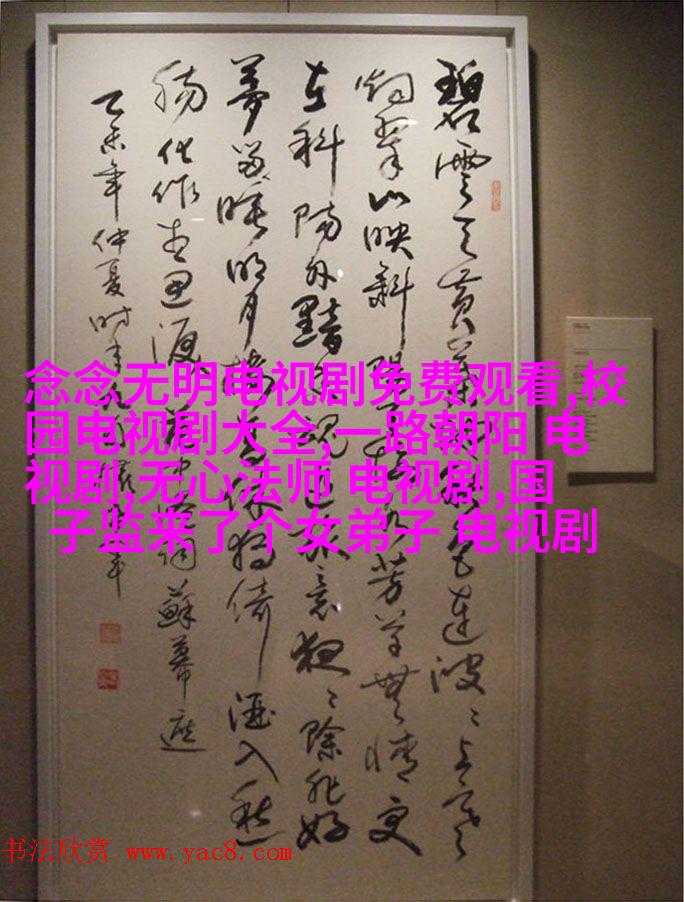 碧雲天黃葉地秋色連波〻上寒
煙翠山映斜陽天接水芳草無情更
在斜陽外黯鄉魂追旅意夜〻除非好
夢留睡明月樓高休獨倚酒入愁
腸化作相思淚 范仲淹詞蘇幕遮
乙未年仲夏時
念念无明电视剧免费观看,校
园电视剧大全,一路朝阳 电
视剧,无心法师 电视剧,国
子监来了个女弟子 电视剧
书法欣赏 www.yac8.com